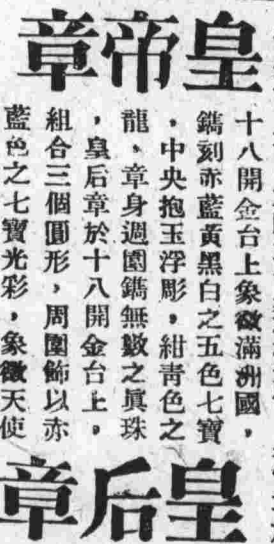 皇帝章
十八開金台上象徵滿洲國，
鐫刻赤藍黃黑白之五色七寶
，中央抱玉浮彫，紺靑色之
龍、章身週圍鐫無數之眞珠
，皇后章於十八開金台上，
組合三個圓形，周圍飾以赤
藍色之七寶光彩，象徵天使
皇后章